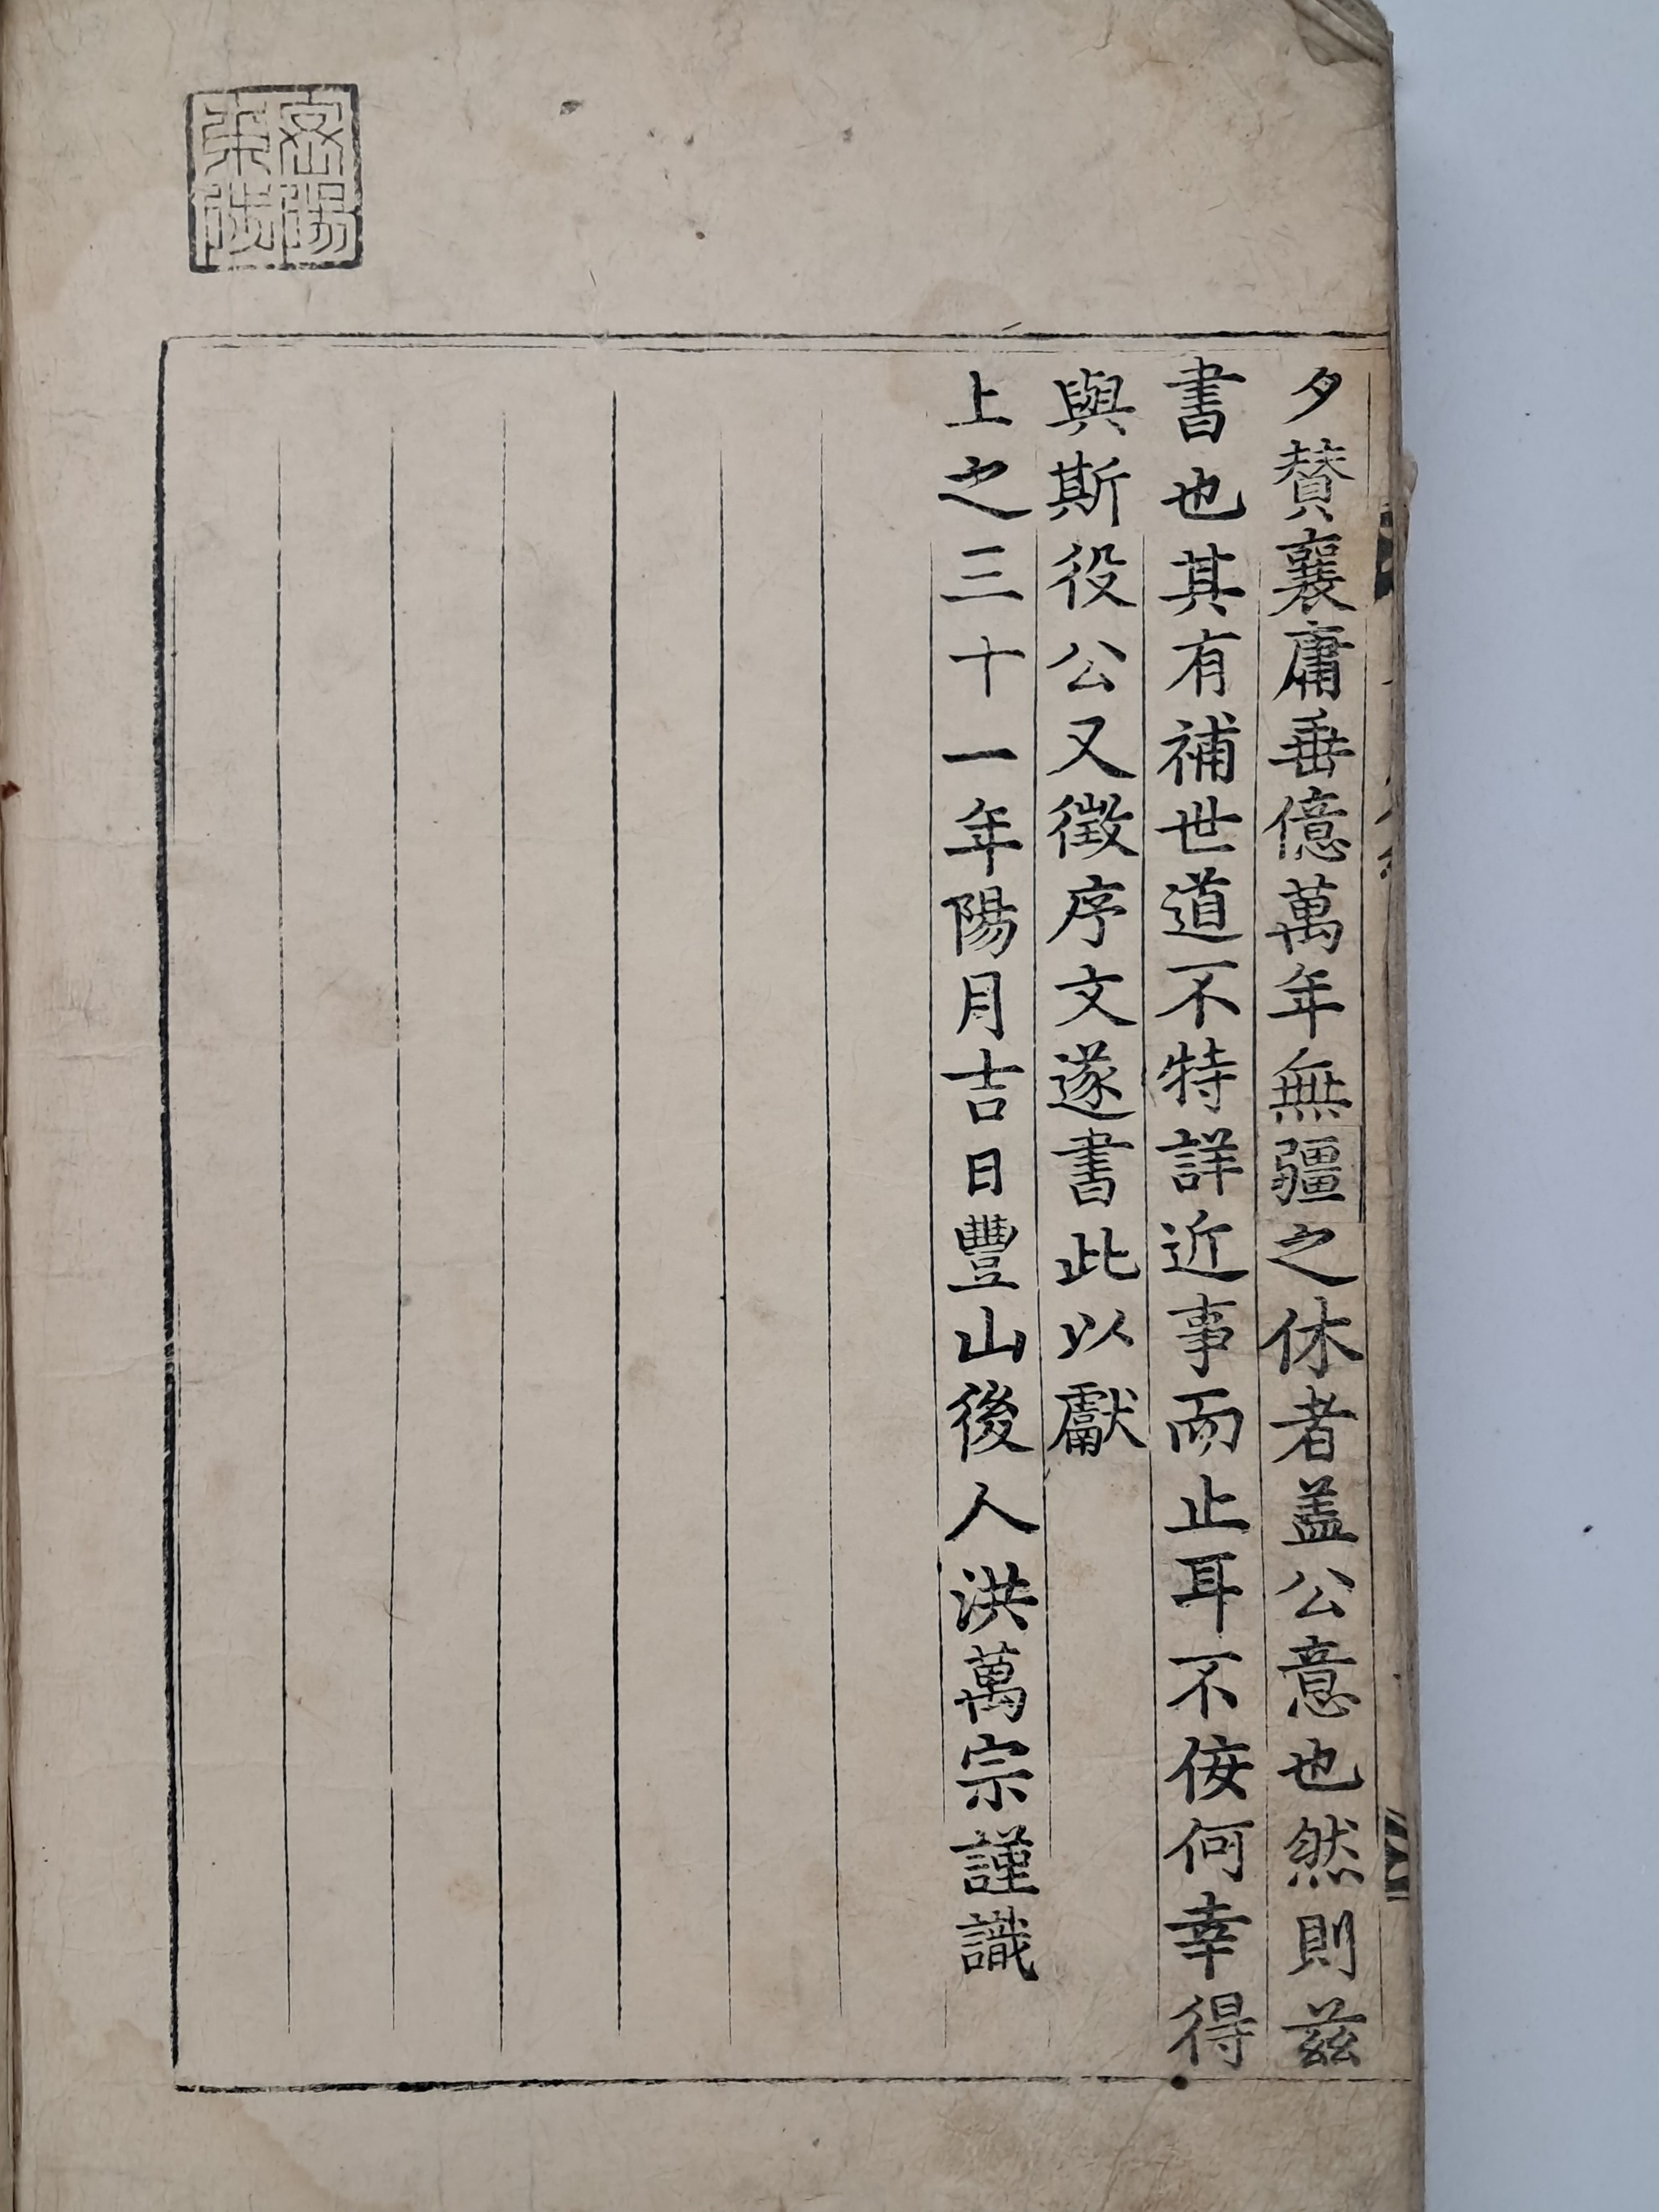 夕賛襄庸垂億萬年無疆之休者盖公意也然則茲
書也其有補世道不特詳近事而止耳不侫何幸得
與斯役公又徵序文遂書此以獻
上之三十一年陽月吉日豐山後人洪萬宗謹識